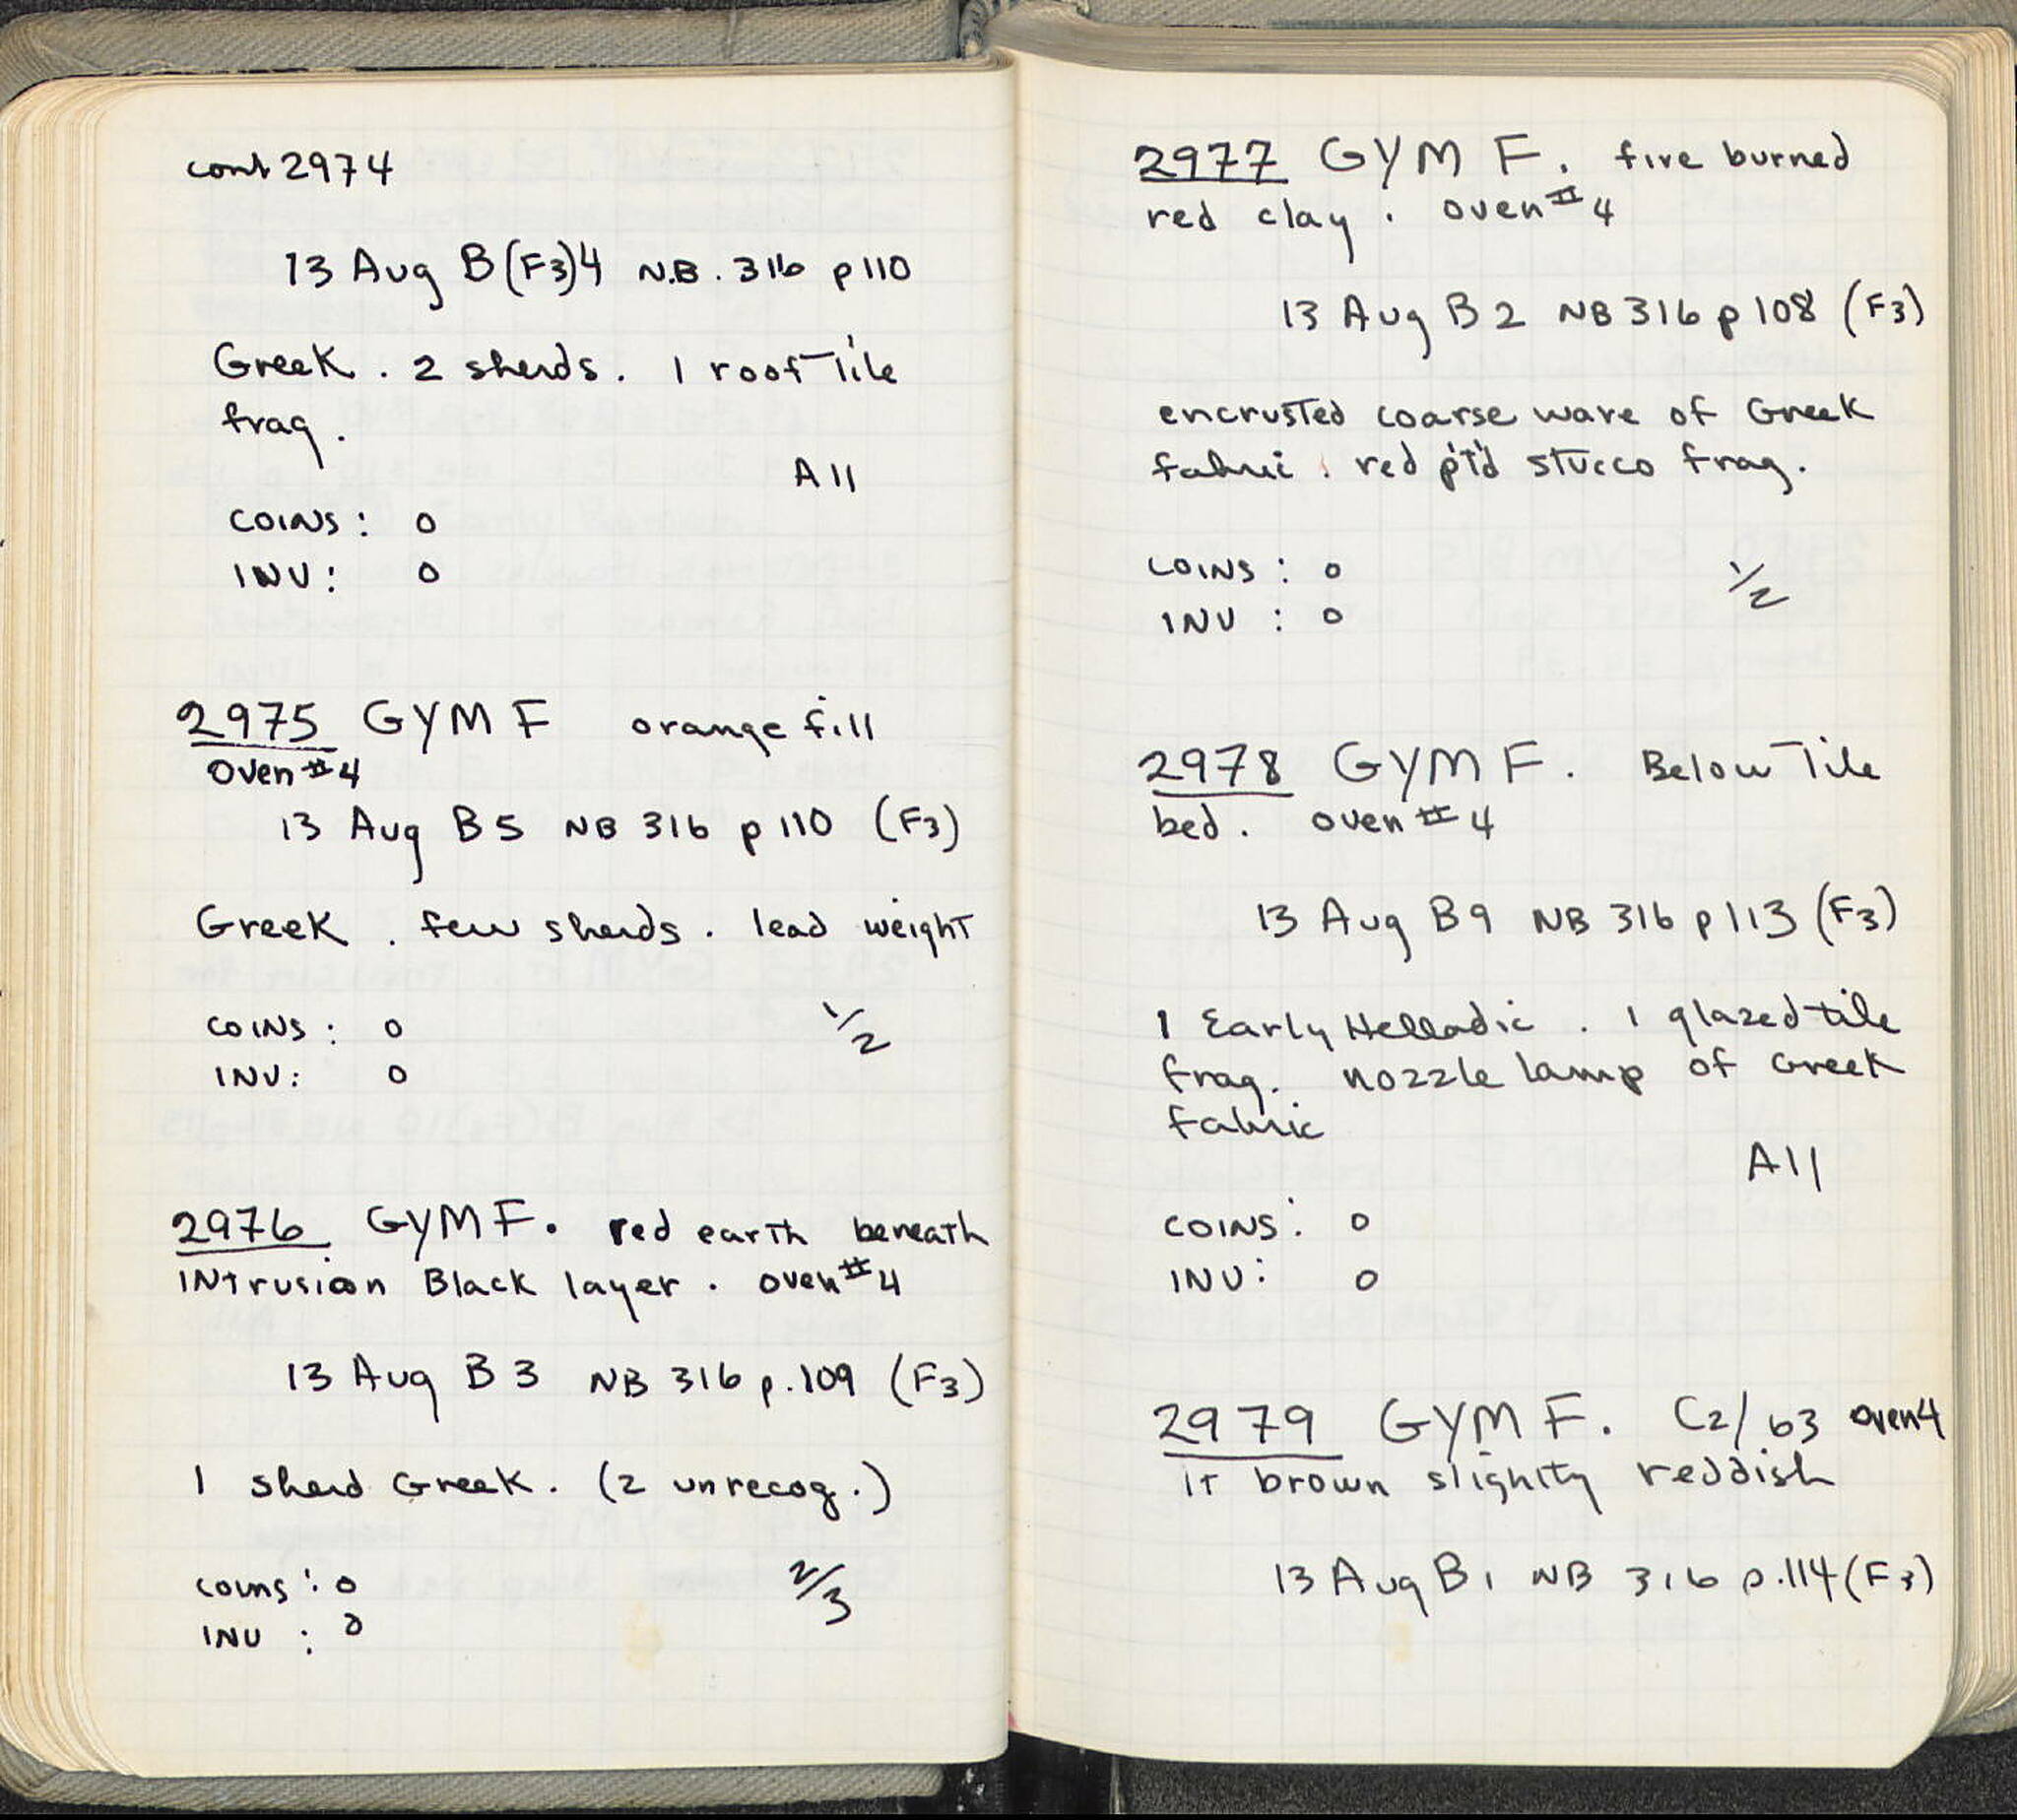 cont 2974
13 Aug B(F3)4 N.B. 316 p110
Greek. 2 sherds. 1 roof Tile
frag.
All
COINS: 0
INV: 0
2975 GYM F orange fill
Oven #4
13 Aug B5 NB 316 p110 (F3)
Greek. few sherds. lead weight
COINS: 0 1/2
INV: 0
2976 GYM F. red earth beneath
INTrusion Black layer. oven #4
13 Aug B3 NB 316 p.109 (F3)
1 sherd Greek. (2 unrecog.)
coins: 0 2/3
INV: 0
2977 GYM F. fire burned
red clay. oven #4
13 Aug B2 NB 316 p108 (F3)
encrusted coarse ware of Greek
fabric. red p't'd stucco frag.
COINS: 0 1/2
INV: 0
2978 GYM F. Below Tile
bed. oven #4
13 Aug B9 NB 316 p113 (F3)
1 Early Helladic. 1 glazed tile
frag. nozzle lamp of Greek
fabric
All
COINS: 0
INV: 0
2979 GYM F. C2/63 oven4
lt brown slightly reddish
13 Aug B1 NB 316 p.114 (F3)